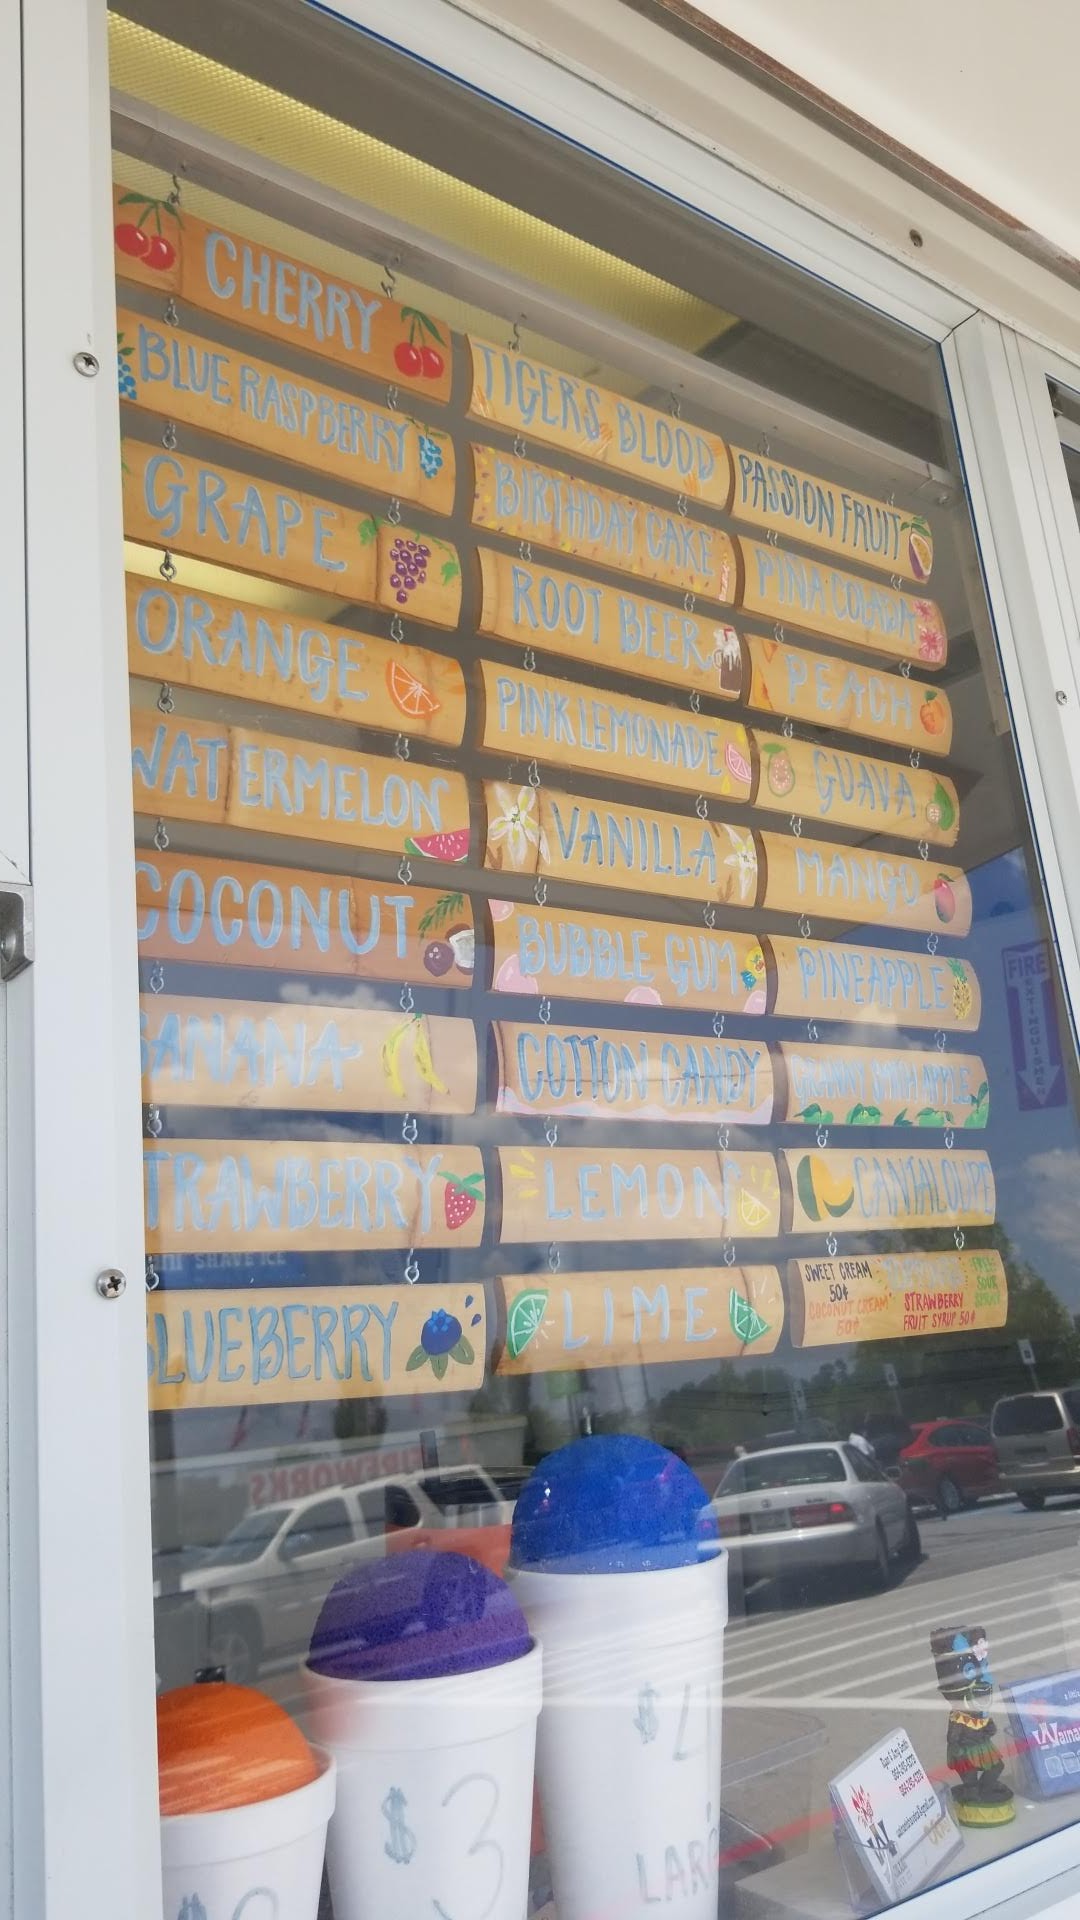 CHERRY
BLUE RASPBERRY
GRAPE
ORANGE
WATERMELON
COCONUT
BANANA
TRAWBERRY
BLUEBERRY
TIGER'S BLOOD
BIRTHDAY CAKE
ROOT BEER
PINK LEMONADE
VANILLA
BUBBLE GUM
COTTON CANDY
LEMON
LIME
PASSION FRUIT
PINA COLADA
PEACH
GUAVA
MANGO
PINEAPPLE
GRANNY SMITH APPLE
CANTALOUPE
SWEET CREAM
50¢
COCONUT CREAM
50¢
FREE
SOUR
SPRAY
STRAWBERRY
FRUIT SYRUP 50¢
SHAVE ICE
FIRE
EXTINGUISHER
FIREWORKS
$3
$4
LARG